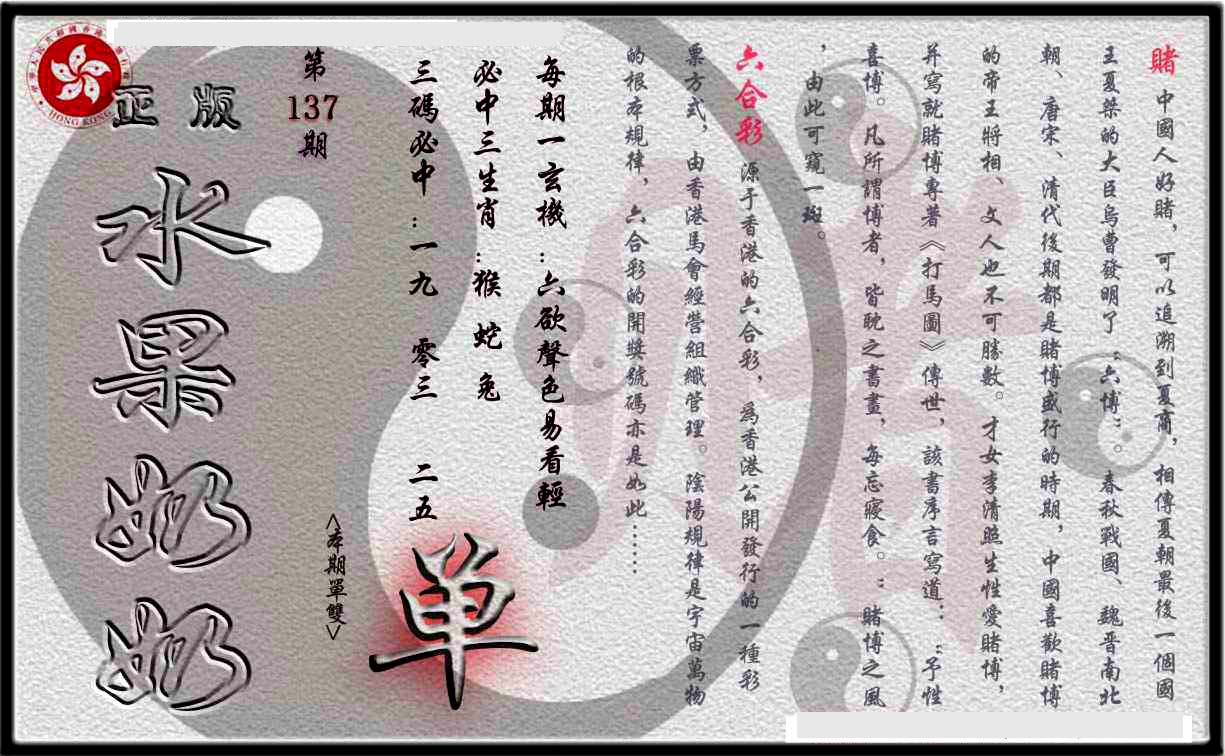 賭 中國人好賭，可以追溯到夏商，相傳夏朝最後一個國
王夏桀的大臣烏曹發明了“六博”。春秋戰國、魏晋南北
朝、唐宋、清代後期都是賭博盛行的時期，中國喜歡賭博
的帝王將相、文人也不可勝數。才女李清照生性愛賭博，
并寫就賭博專著《打馬圖》傳世，該書序言寫道：“予性
喜博。凡所謂博者，皆耽之書畫，每忘寢食。”賭博之風
，由此可窺一斑。
六合彩 源于香港的六合彩，為香港公開發行的一種彩
票方式，由香港馬會經營組織管理。陰陽規律是宇宙萬物
的根本規律，六合彩的開獎號碼亦是如此……
每期一玄機：六欲聲色易看輕
必中三生肖：猴 蛇 兔
三碼必中：一九 零三 二五
单
<本期單雙>
第137期
正版
水果奶奶
HONG KONG